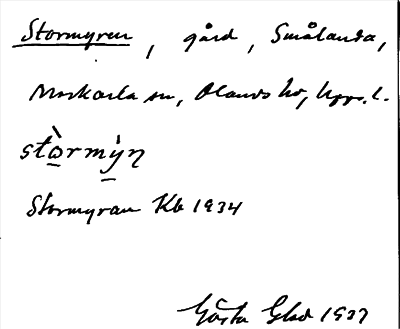 Stormyren, gård, Smålanda,
Morkarla sn, Olands hd, Upps. l.
stòrmẏ̀n
Stormyran Kb 1934
Gösta Glad 1937